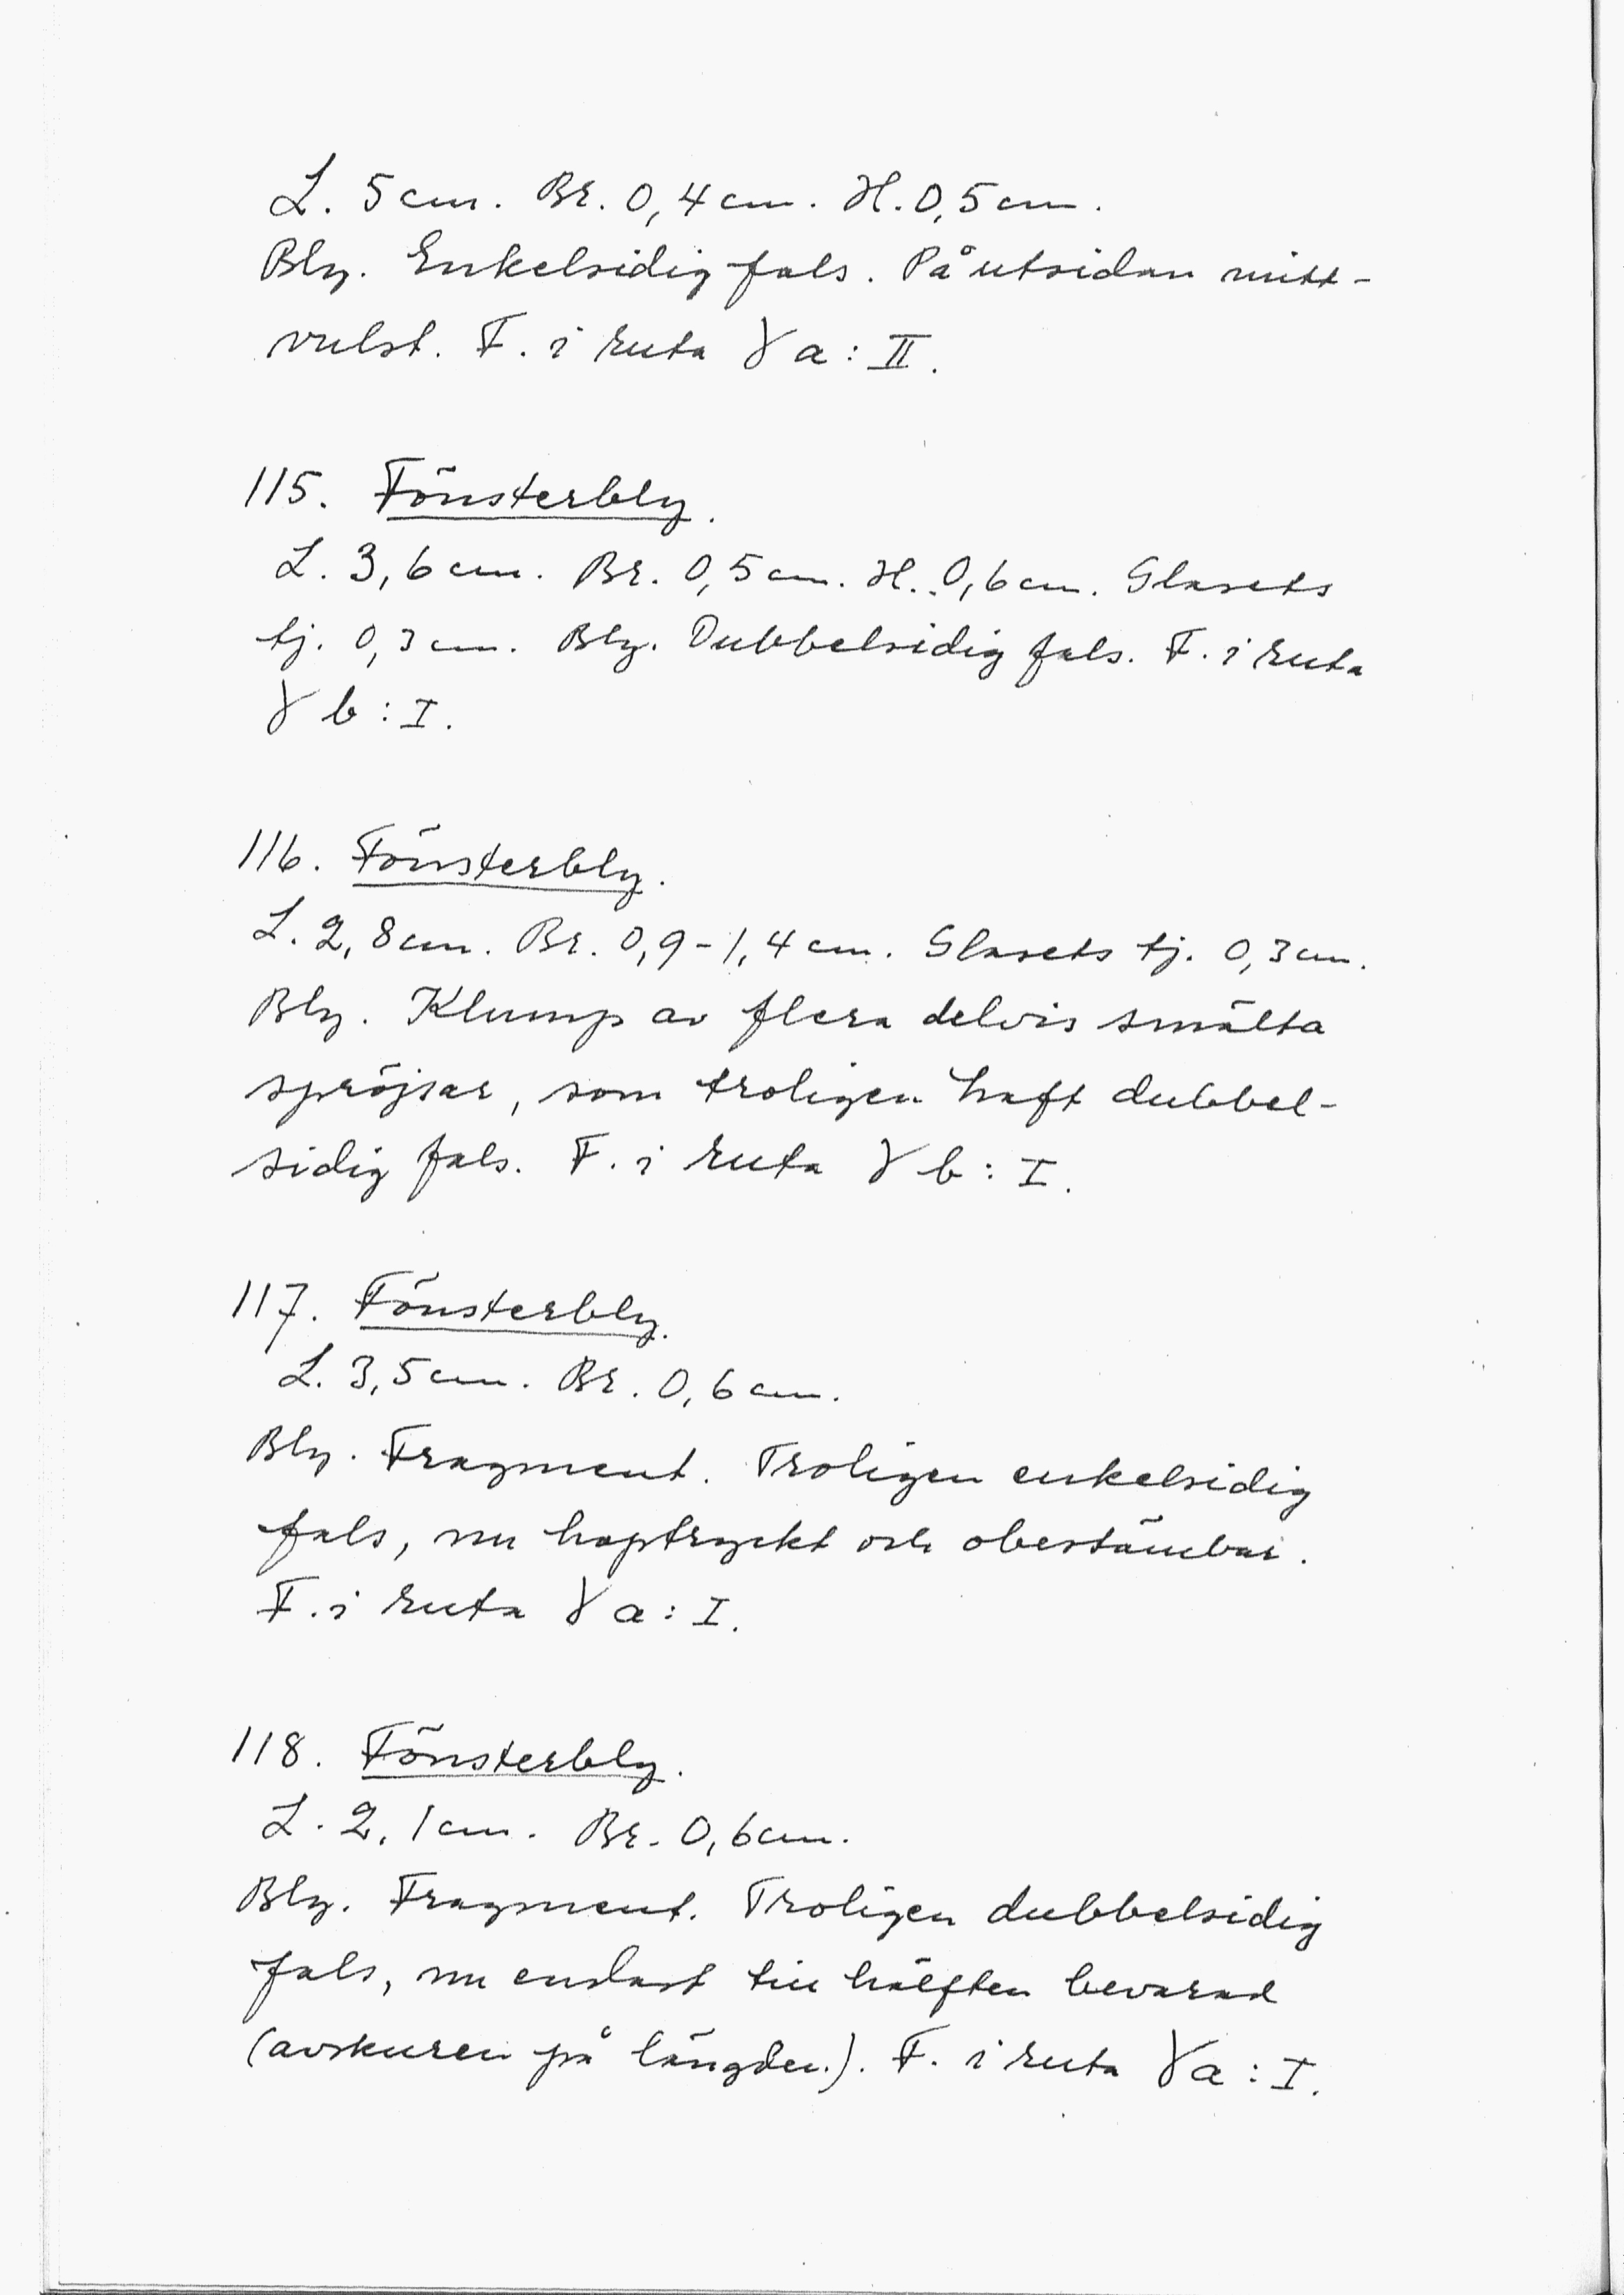 L. 5 cm. Br. 0,4 cm. H. 0,5 cm.
Bly. Enkelsidig fals. På utsidan mitt-
vulst. F. i ruta γ a : II.
115. Fönsterbly.
L. 3,6 cm. Br. 0,5 cm. H. 0,6 cm. Glasets
tj. 0,3 cm. Bly. Dubbelsidig fals. F. i ruta
γ b : I.
116. Fönsterbly.
L. 2,8 cm. Br. 0,9-1,4 cm. Glasets tj. 0,3 cm.
Bly. Klump av flera delvis smälta
spröjsar, som troligen haft dubbel-
sidig fals. F. i ruta γ b : I.
117. Fönsterbly.
L. 3,5 cm. Br. 0,6 cm.
Bly. Fragment. Troligen enkelsidig
fals, nu hoptryckt och obestämbar.
F. i ruta γ a : I.
118. Fönsterbly.
L. 2,1 cm. Br. 0,6 cm.
Bly. Fragment. Troligen dubbelsidig
fals, nu endast till hälften bevarad
(avskuren på längden.). F. i ruta γ a : I.